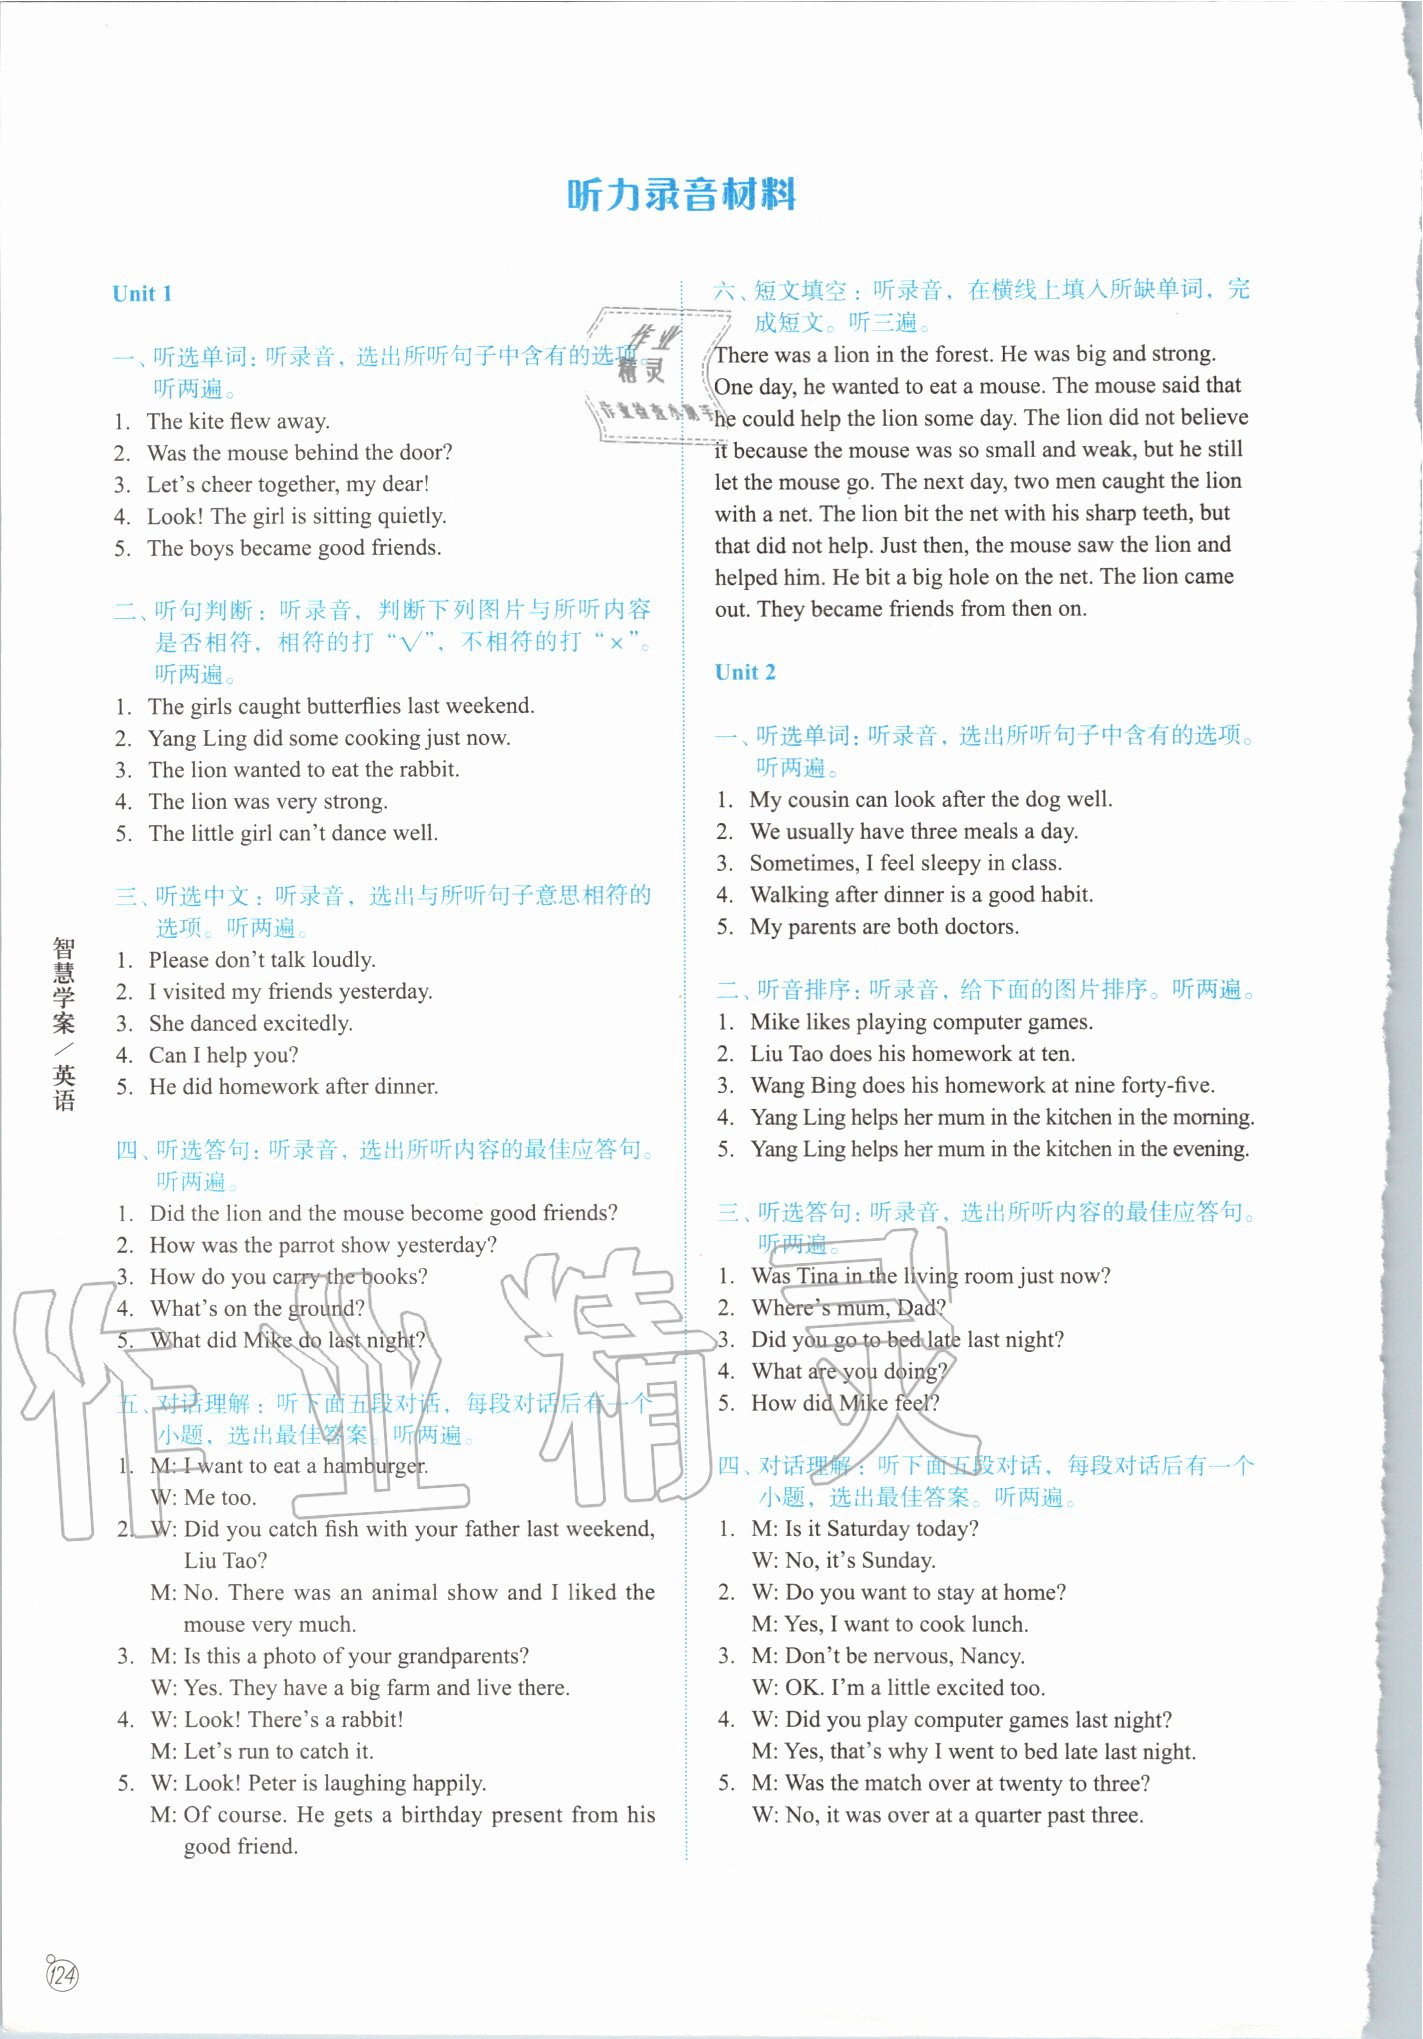 听力录音材料
Unit 1
一、听选单词：听录音，选出所听句子中含有的选项。
听两遍。
1. The kite flew away.
2. Was the mouse behind the door?
3. Let's cheer together, my dear!
4. Look! The girl is sitting quietly.
5. The boys became good friends.
二、听句判断：听录音，判断下列图片与所听内容
是否相符，相符的打“√”，不相符的打“×”。
听两遍。
1. The girls caught butterflies last weekend.
2. Yang Ling did some cooking just now.
3. The lion wanted to eat the rabbit.
4. The lion was very strong.
5. The little girl can't dance well.
三、听选中文：听录音，选出与所听句子意思相符的
选项。听两遍。
1. Please don't talk loudly.
2. I visited my friends yesterday.
3. She danced excitedly.
4. Can I help you?
5. He did homework after dinner.
四、听选答句：听录音，选出所听内容的最佳应答句。
听两遍。
1. Did the lion and the mouse become good friends?
2. How was the parrot show yesterday?
3. How do you carry the books?
4. What's on the ground?
5. What did Mike do last night?
五、对话理解：听下面五段对话，每段对话后有一个
小题，选出最佳答案。听两遍。
1. M: I want to eat a hamburger.
W: Me too.
2. W: Did you catch fish with your father last weekend,
Liu Tao?
M: No. There was an animal show and I liked the
mouse very much.
3. M: Is this a photo of your grandparents?
W: Yes. They have a big farm and live there.
4. W: Look! There's a rabbit!
M: Let's run to catch it.
5. W: Look! Peter is laughing happily.
M: Of course. He gets a birthday present from his
good friend.
六、短文填空：听录音，在横线上填入所缺单词，完
成短文。听三遍。
There was a lion in the forest. He was big and strong.
One day, he wanted to eat a mouse. The mouse said that
he could help the lion some day. The lion did not believe
it because the mouse was so small and weak, but he still
let the mouse go. The next day, two men caught the lion
with a net. The lion bit the net with his sharp teeth, but
that did not help. Just then, the mouse saw the lion and
helped him. He bit a big hole on the net. The lion came
out. They became friends from then on.
Unit 2
一、听选单词：听录音，选出所听句子中含有的选项。
听两遍。
1. My cousin can look after the dog well.
2. We usually have three meals a day.
3. Sometimes, I feel sleepy in class.
4. Walking after dinner is a good habit.
5. My parents are both doctors.
二、听音排序：听录音，给下面的图片排序。听两遍。
1. Mike likes playing computer games.
2. Liu Tao does his homework at ten.
3. Wang Bing does his homework at nine forty-five.
4. Yang Ling helps her mum in the kitchen in the morning.
5. Yang Ling helps her mum in the kitchen in the evening.
三、听选答句：听录音，选出所听内容的最佳应答句。
听两遍。
1. Was Tina in the living room just now?
2. Where's mum, Dad?
3. Did you go to bed late last night?
4. What are you doing?
5. How did Mike feel?
四、对话理解：听下面五段对话，每段对话后有一个
小题，选出最佳答案。听两遍。
1. M: Is it Saturday today?
W: No, it's Sunday.
2. W: Do you want to stay at home?
M: Yes, I want to cook lunch.
3. M: Don't be nervous, Nancy.
W: OK. I'm a little excited too.
4. W: Did you play computer games last night?
M: Yes, that's why I went to bed late last night.
5. M: Was the match over at twenty to three?
W: No, it was over at a quarter past three.
智慧学案／英语
124
作业
精灵
作业检查小助手
作业精灵